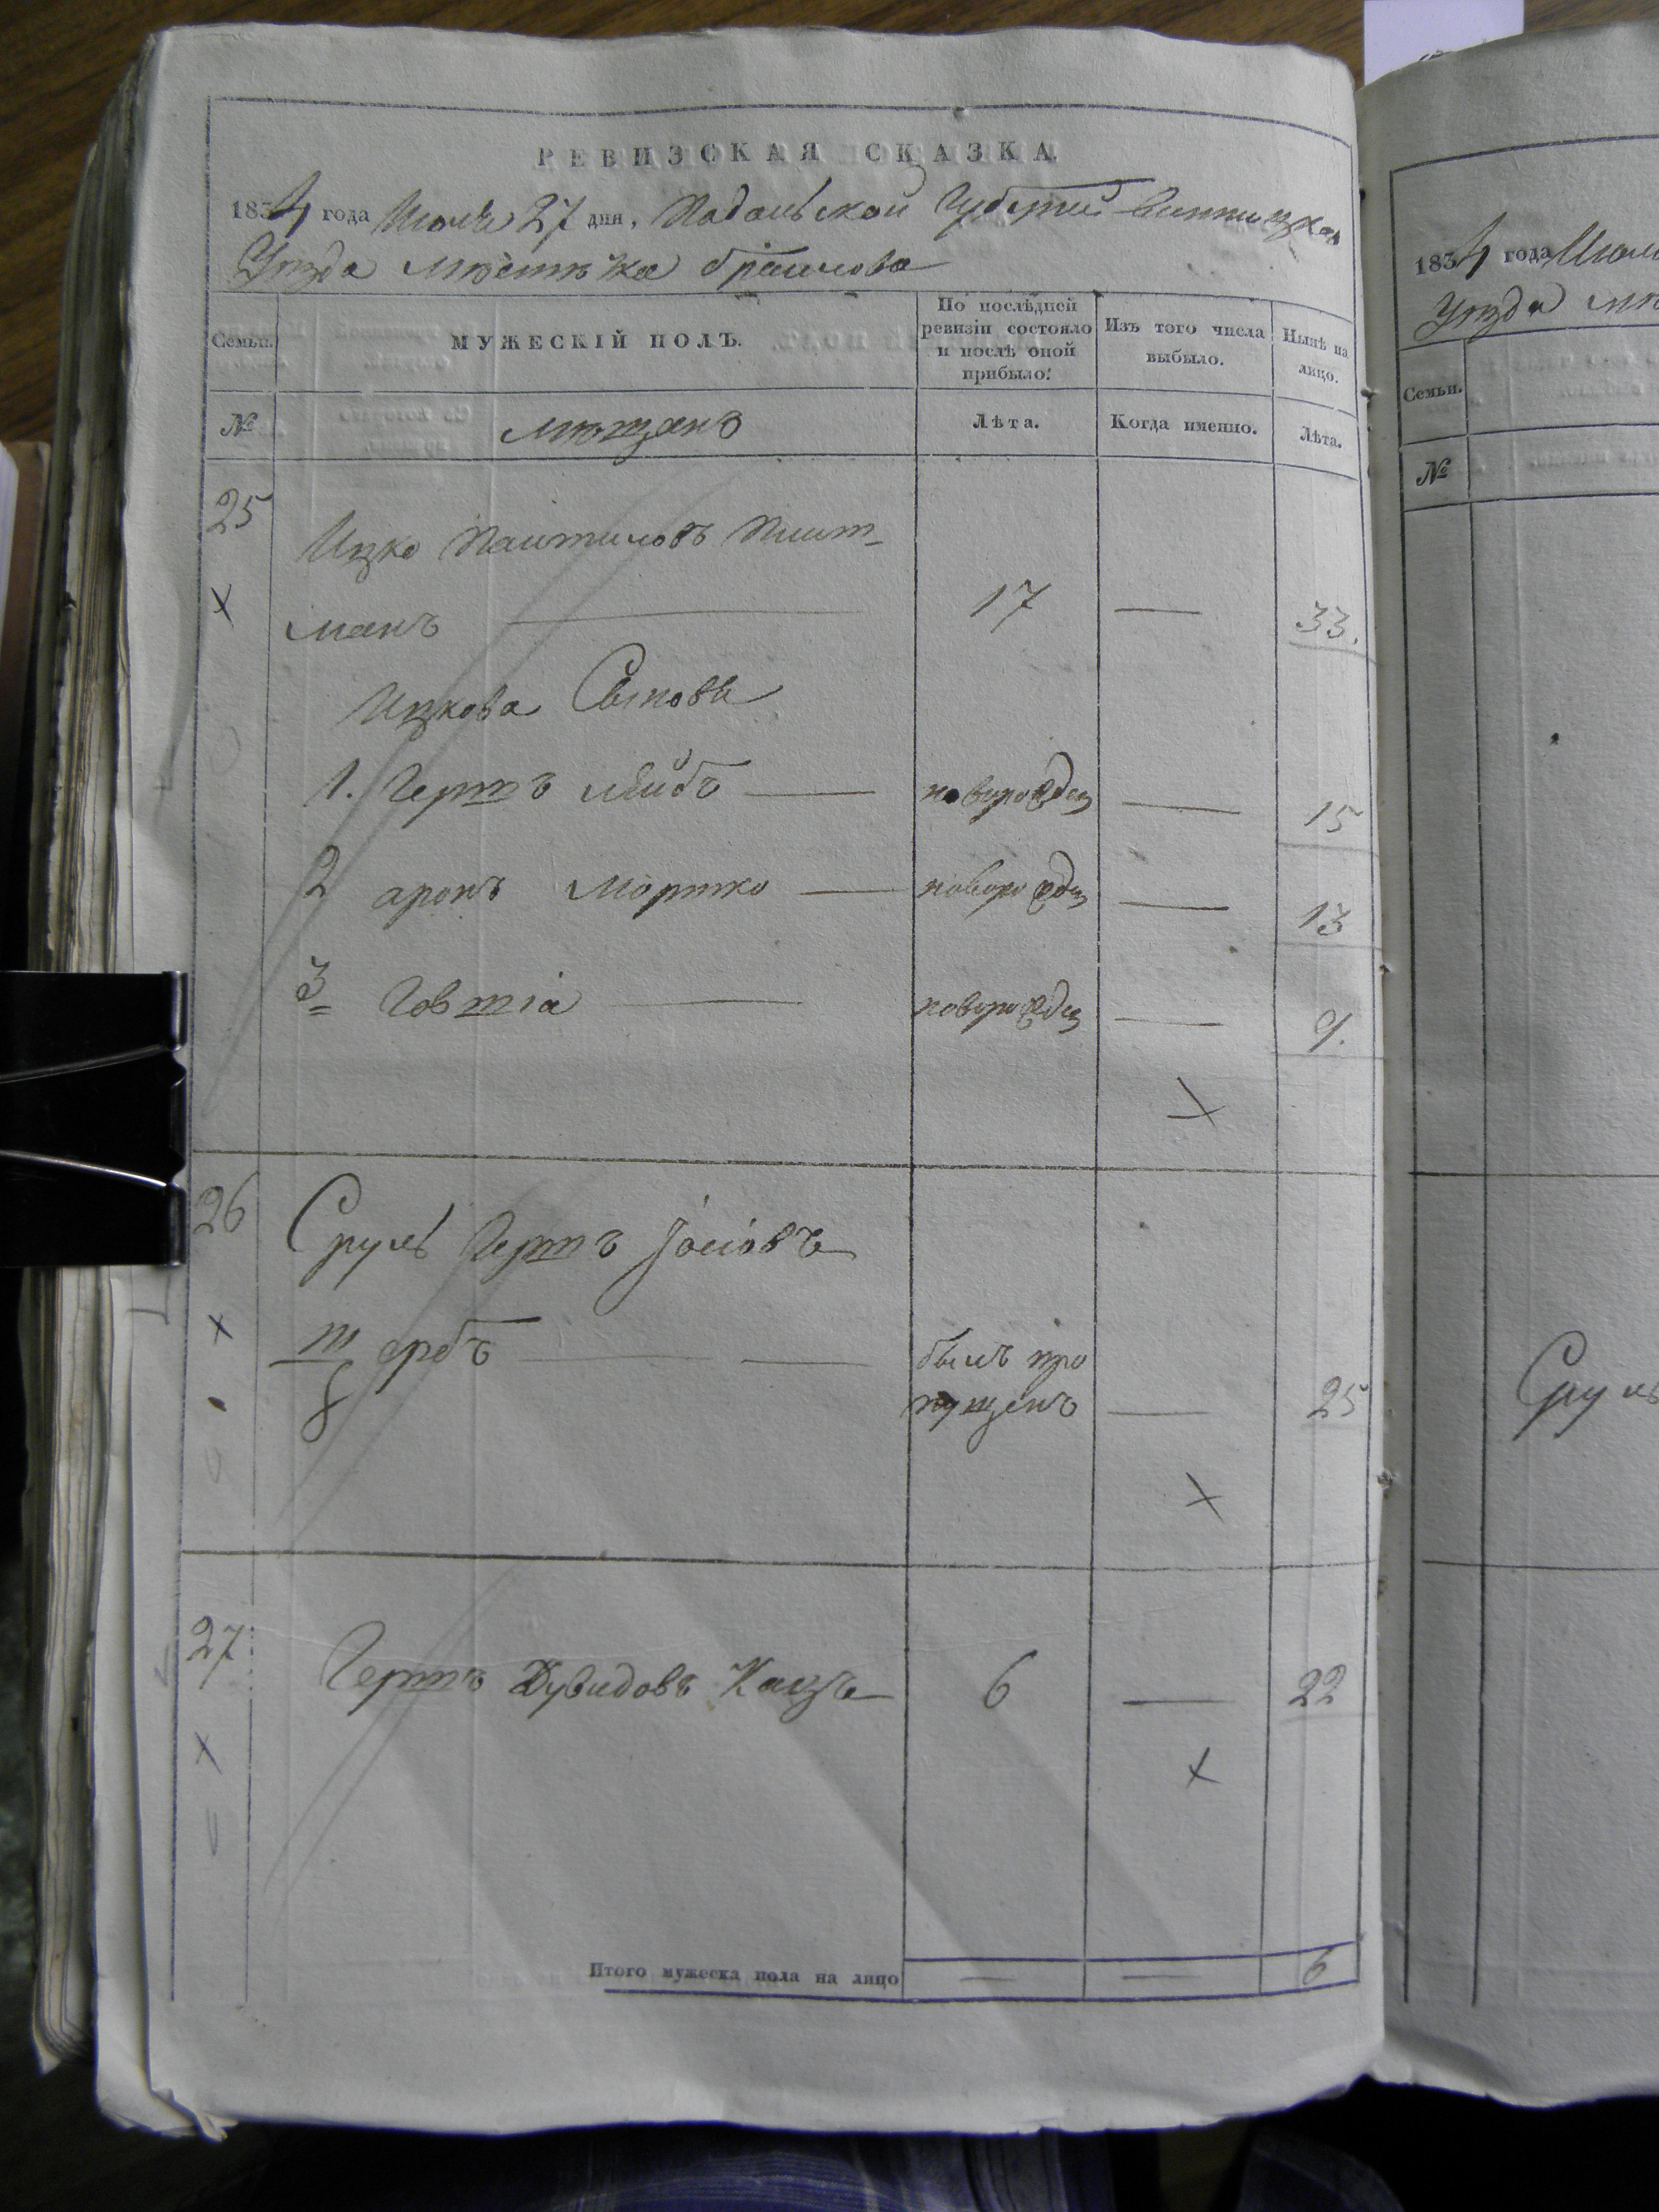 РЕВИЗСКАЯ СКАЗКА
1834 года Июля 27 дня, Подольской Губерніи Винницкаго
Уѣзда мѣстѣчка браилова
Семьи. МУЖЕСКІЙ ПОЛЪ. По послѣдней ревизіи состояло и послѣ оной прибыло. Изъ того числа выбыло. Нынѣ на лицо.
№ мѣщанъ Лѣта. Когда именно. Лѣта.
25 Ицко
манъ 17 — 33.
Ицкова Сыновя
1. Гершъ лейбъ — новорожден — 15
2 аронъ Мортко — новорожден — 13
3 Говшіа — новорожден — 9.
26 Сруль Гершъ Іосіовъ
Щербъ — былъ про
пущенъ — 25
27 Гершъ Дувидовъ Кацъ 6 — 22
Итого мужеска пола на лицо — — 6
1834 года Июля
Уѣзда мѣ
Семьи.
№
Сруль